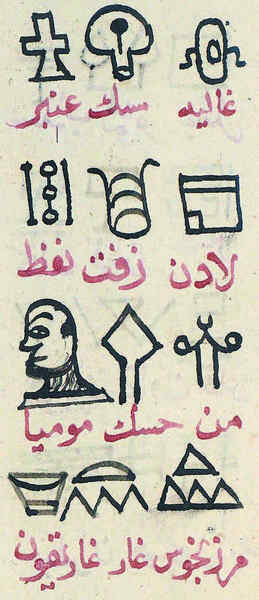 غاليه مسك عنبر
لادن زفت نفط
من حسك موميا
مرزنجوس غار غاريقون